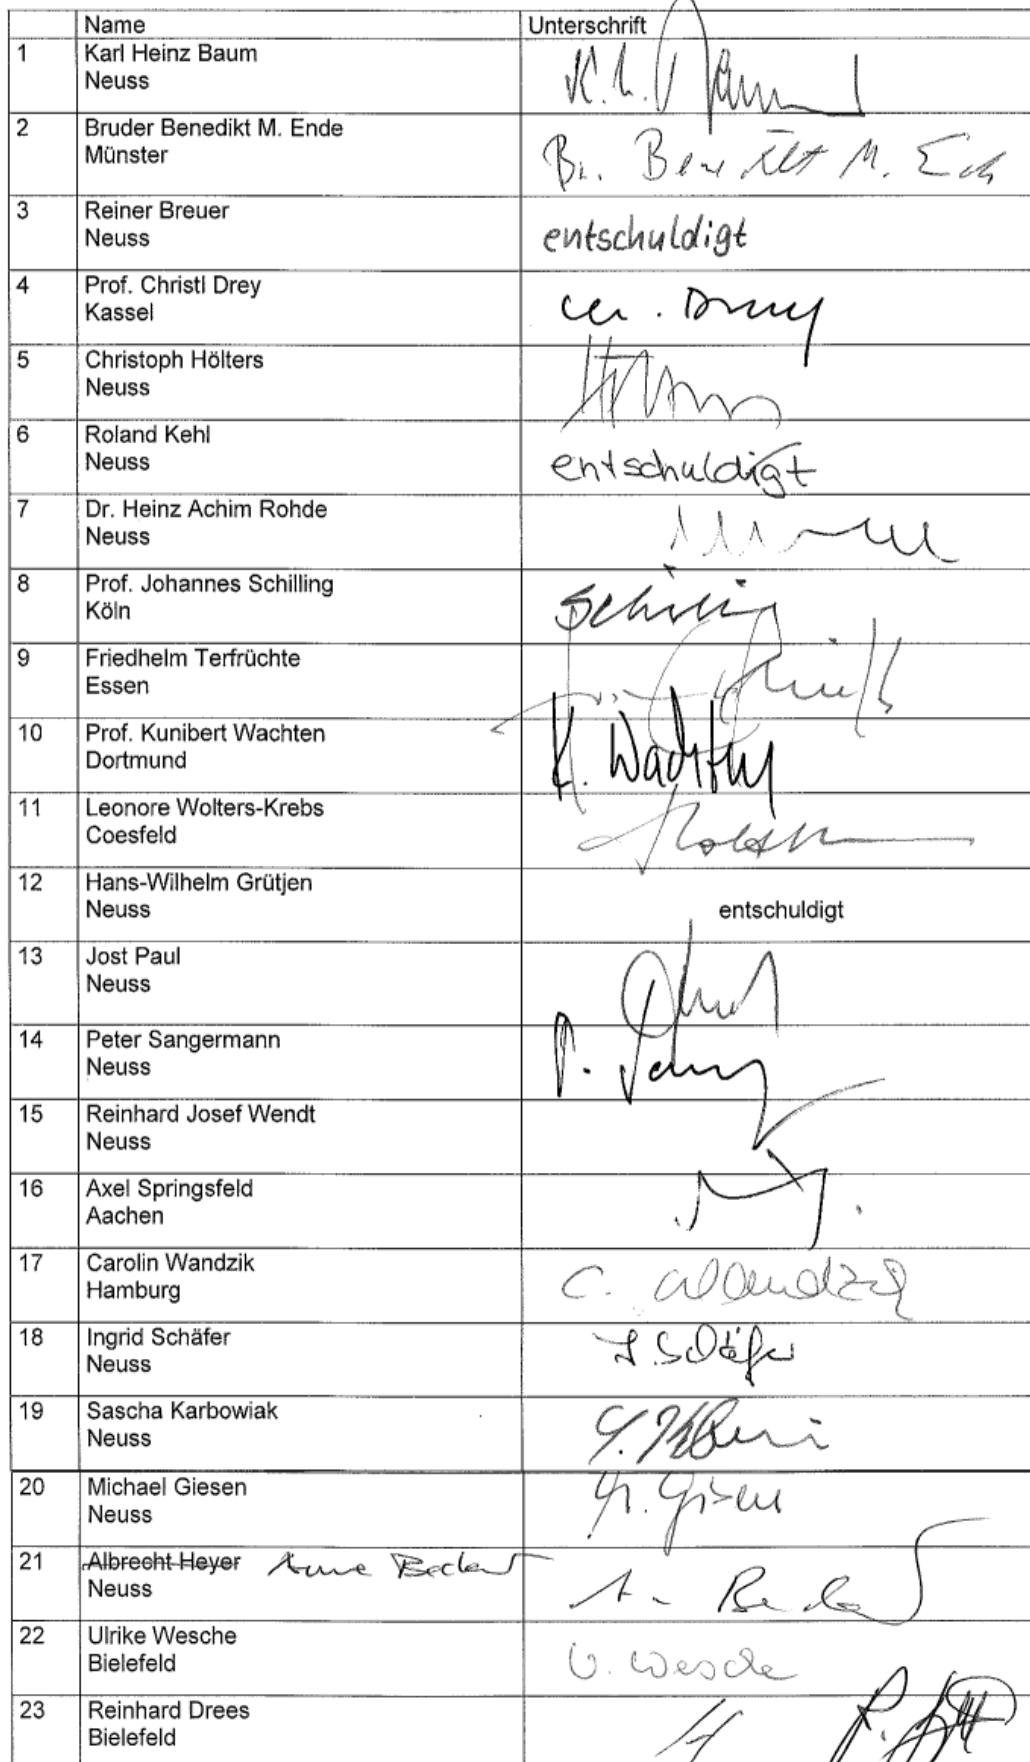 Name Unterschrift
1 Karl Heinz Baum
Neuss
K. h. Baum
2 Bruder Benedikt M. Ende
Münster
Br. Benedikt M. Ende
3 Reiner Breuer
Neuss
entschuldigt
4 Prof. Christl Drey
Kassel
Drey
5 Christoph Hölters
Neuss
6 Roland Kehl
Neuss
entschuldigt
7 Dr. Heinz Achim Rohde
Neuss
8 Prof. Johannes Schilling
Köln
Schilling
9 Friedhelm Terfrüchte
Essen
10 Prof. Kunibert Wachten
Dortmund
K. Wachten
11 Leonore Wolters-Krebs
Coesfeld
12 Hans-Wilhelm Grütjen
Neuss
entschuldigt
13 Jost Paul
Neuss
14 Peter Sangermann
Neuss
P.
15 Reinhard Josef Wendt
Neuss
16 Axel Springsfeld
Aachen
17 Carolin Wandzik
Hamburg
C. Wandzik
18 Ingrid Schäfer
Neuss
I. Schäfer
19 Sascha Karbowiak
Neuss
20 Michael Giesen
Neuss
M. Giesen
21 Albrecht Heyer
Neuss
A.
22 Ulrike Wesche
Bielefeld
U. Wesche
23 Reinhard Drees
Bielefeld